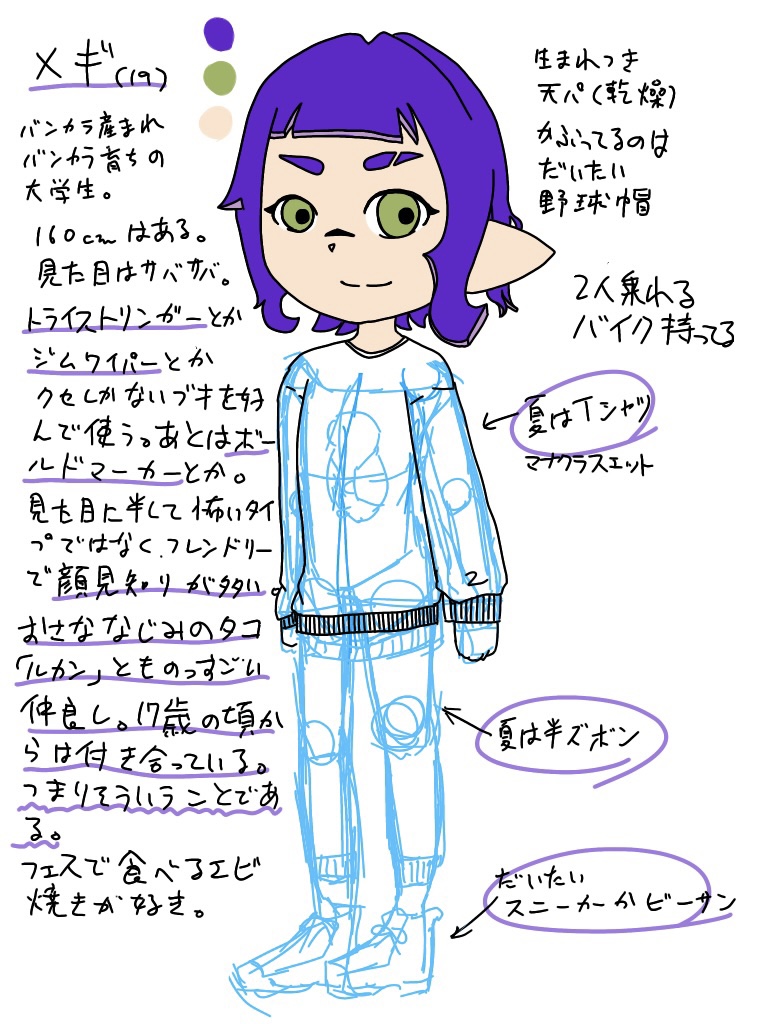 メギ(19)
バンカラ産まれ
バンカラ育ちの
大学生。
160cmはある。
見た目はサバサバ。
トライストリンガーとか
ジムワイパーとか
クセしかないブキを好
んで使う。あとはボー
ルドマーカーとか。
見た目に半して怖いタイ
プではなく、フレンドリー
で顔見知りが多い。
おさななじみのタコ
「ルカン」とものっすごい
仲良し。17歳の頃か
らは付き合っている。
つまりそういうことであ
る。
フェスで食べるエビ
焼きが好き。
生まれつき
天パ(乾燥)
かぶってるのは
だいたい
野球帽
2人乗れる
バイク持ってる
夏はTシャツ
マナクラスエット
夏は半ズボン
だいたい
スニーカーかビーサン